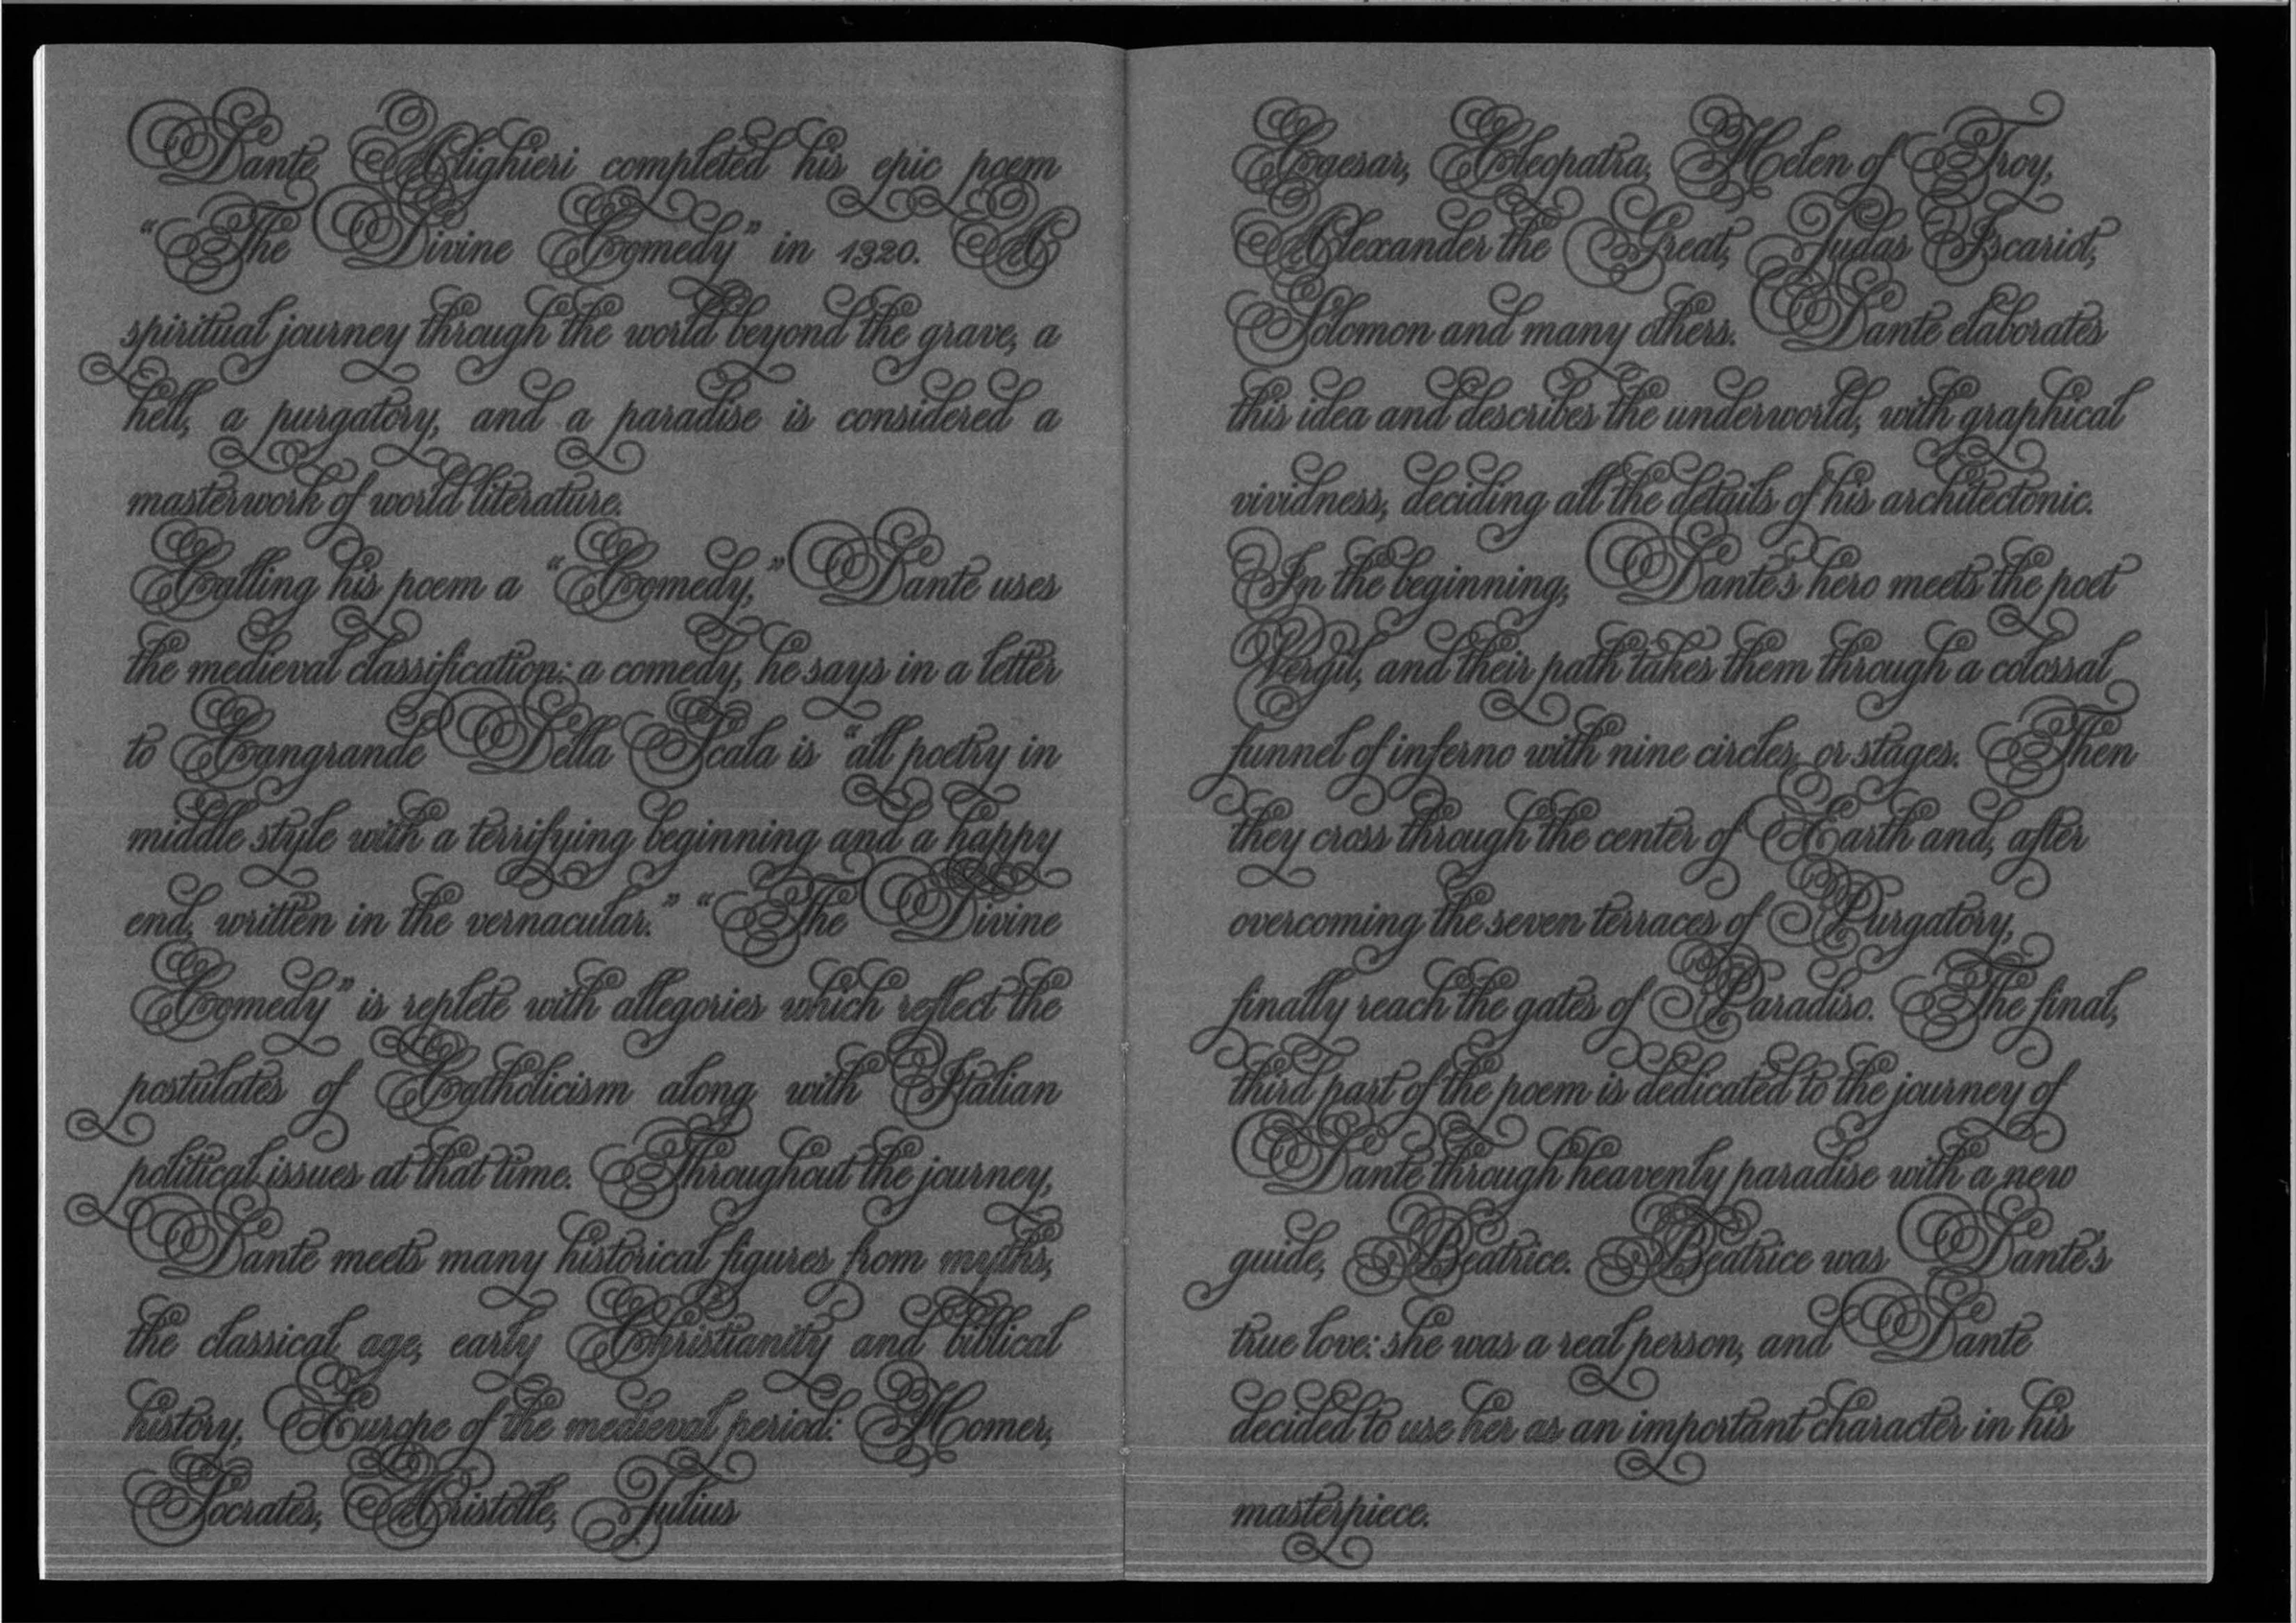 Dante Alighieri completed his epic poem
“The Divine Comedy” in 1320. A
spiritual journey through the world beyond the grave, a
hell, a purgatory, and a paradise is considered a
masterwork of world literature.
Calling his poem a “Comedy,” Dante uses
the medieval classification: a comedy, he says in a letter
to Cangrande Della Scala is “all poetry in
middle style with a terrifying beginning and a happy
end, written in the vernacular.” “The Divine
Comedy” is replete with allegories which reflect the
postulates of Catholicism along with Italian
political issues at that time. Throughout the journey,
Dante meets many historical figures from myths,
the classical age, early Christianity and biblical
history, Europe of the medieval period: Homer,
Socrates, Aristotle, Julius
Caesar, Cleopatra, Helen of Troy,
Alexander the Great, Judas Iscariot,
Solomon and many others. Dante elaborates
this idea and describes the underworld, with graphical
vividness, deciding all the details of his architectonic.
In the beginning, Dante's hero meets the poet
Vergil, and their path takes them through a colossal
funnel of inferno with nine circles, or stages. Then
they cross through the center of Earth and, after
overcoming the seven terraces of Purgatory,
finally reach the gates of Paradiso. The final,
third part of the poem is dedicated to the journey of
Dante through heavenly paradise with a new
guide, Beatrice. Beatrice was Dante's
true love: she was a real person, and Dante
decided to use her as an important character in his
masterpiece.